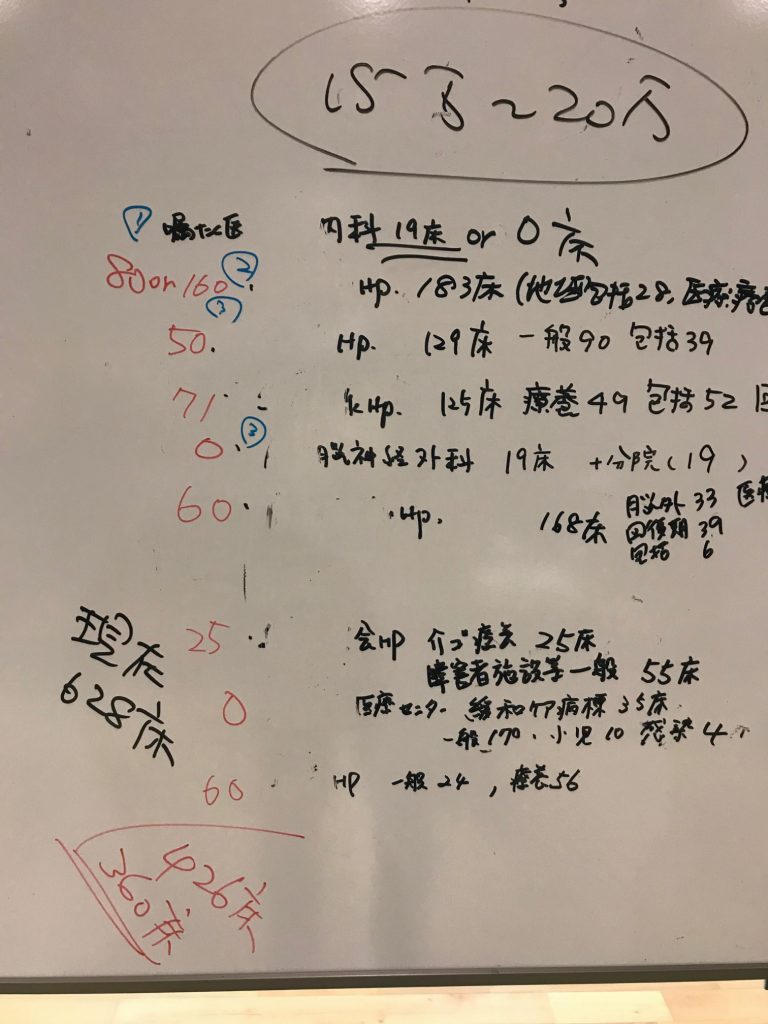 15万~20万
① 嘱たく医 内科 19床 or 0床
80 or 160 ② Hp. 183床 (地域包括28, 医療療養
③
50. Hp. 129床 一般90 包括39
71 Hp. 125床 療養49 包括52 回
0 ③ 脳神経外科 19床 +分院(19)
60 Hp. 168床 脳外 33 医療
回復期 39
包括 6
現在 25 会HP 介ゴ療養 25床
628床 障害者施設等一般 55床
0 医療センター 緩和ケア病棟 35床
一般170・小児10 感染4
60 HP 一般24, 療養56
426床
360床